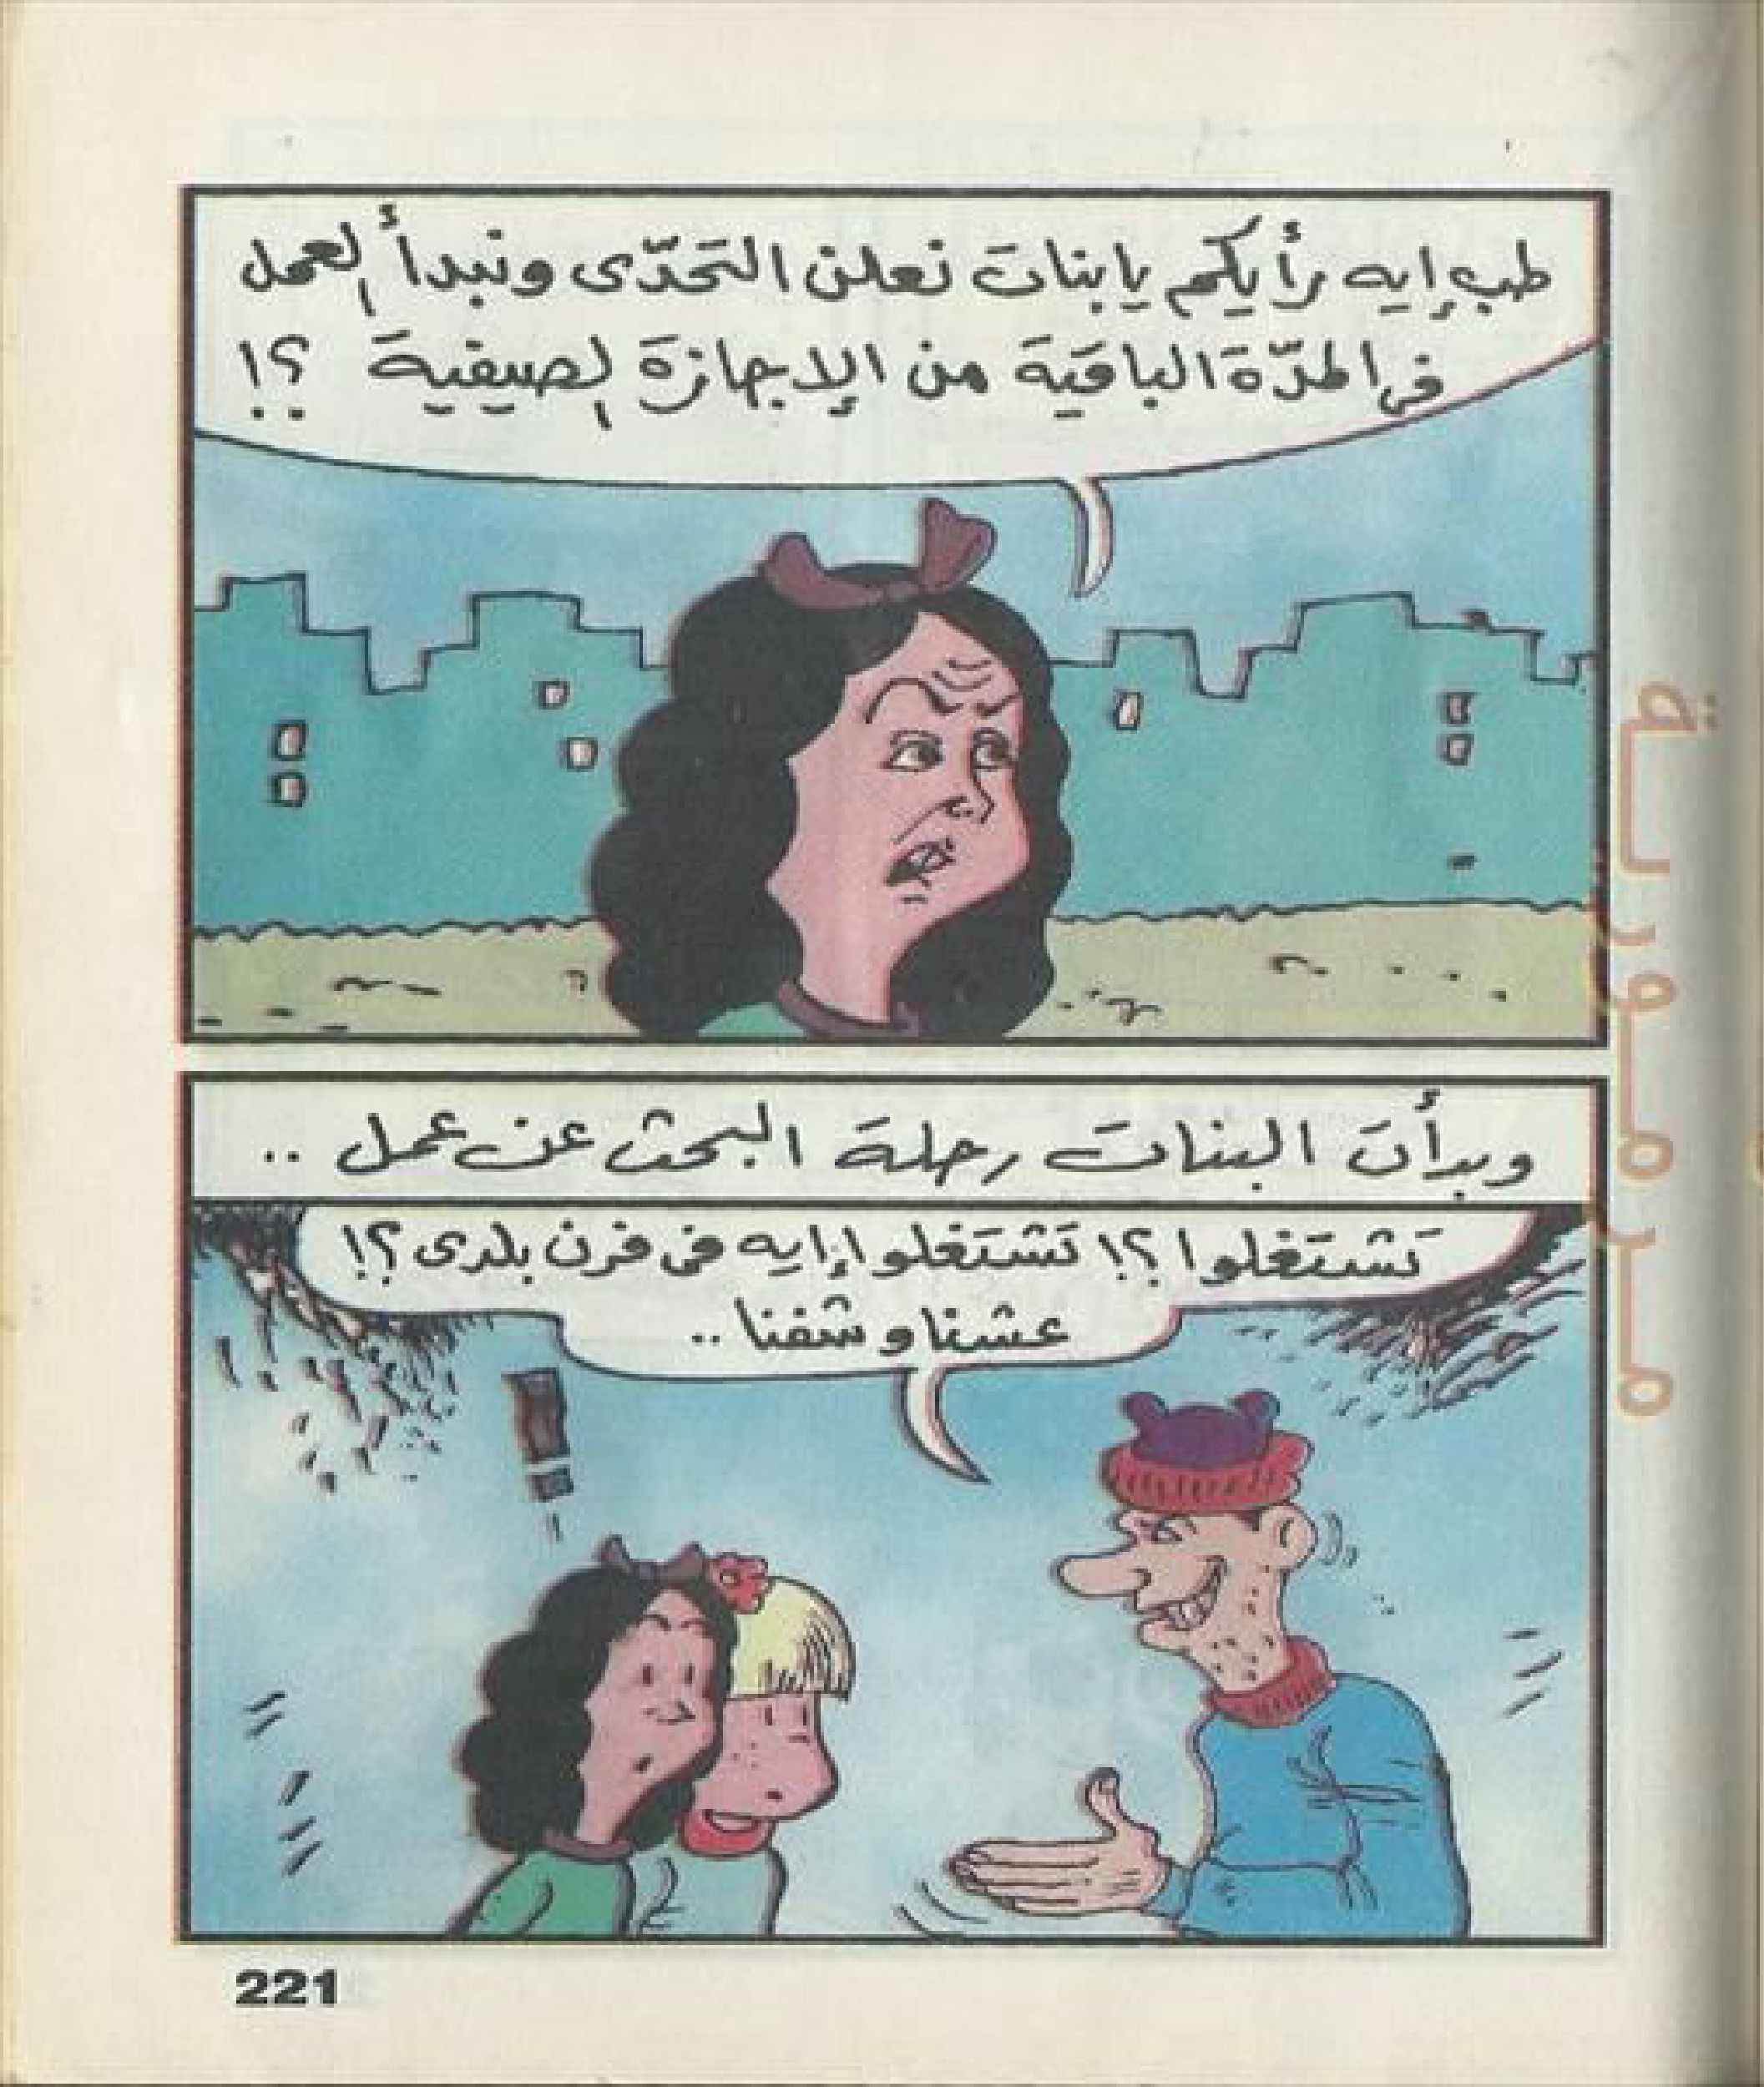 طب إيه رأيكم يا بنات نعلن التحدّى ونبدأ العمل
فى المدّة الباقية من الإجازة الصيفية ؟!
وبدأت البنات رحلة البحث عن عمل ..
تشتغلوا ؟! تشتغلوا إيه فى فرن بلدى ؟!
عشنا وشفنا ..
221
مرمورية